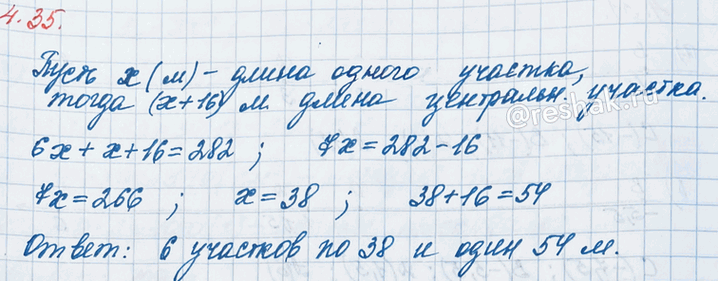 4.35.
Пусть x (м) - длина одного участка,
тогда (x+16) м длина центральн. участка.
reshak.ru
6x + x + 16 = 282 ; 7x = 282 - 16
7x = 266 ; x = 38 ; 38 + 16 = 54
Ответ: 6 участков по 38 и один 54 м.